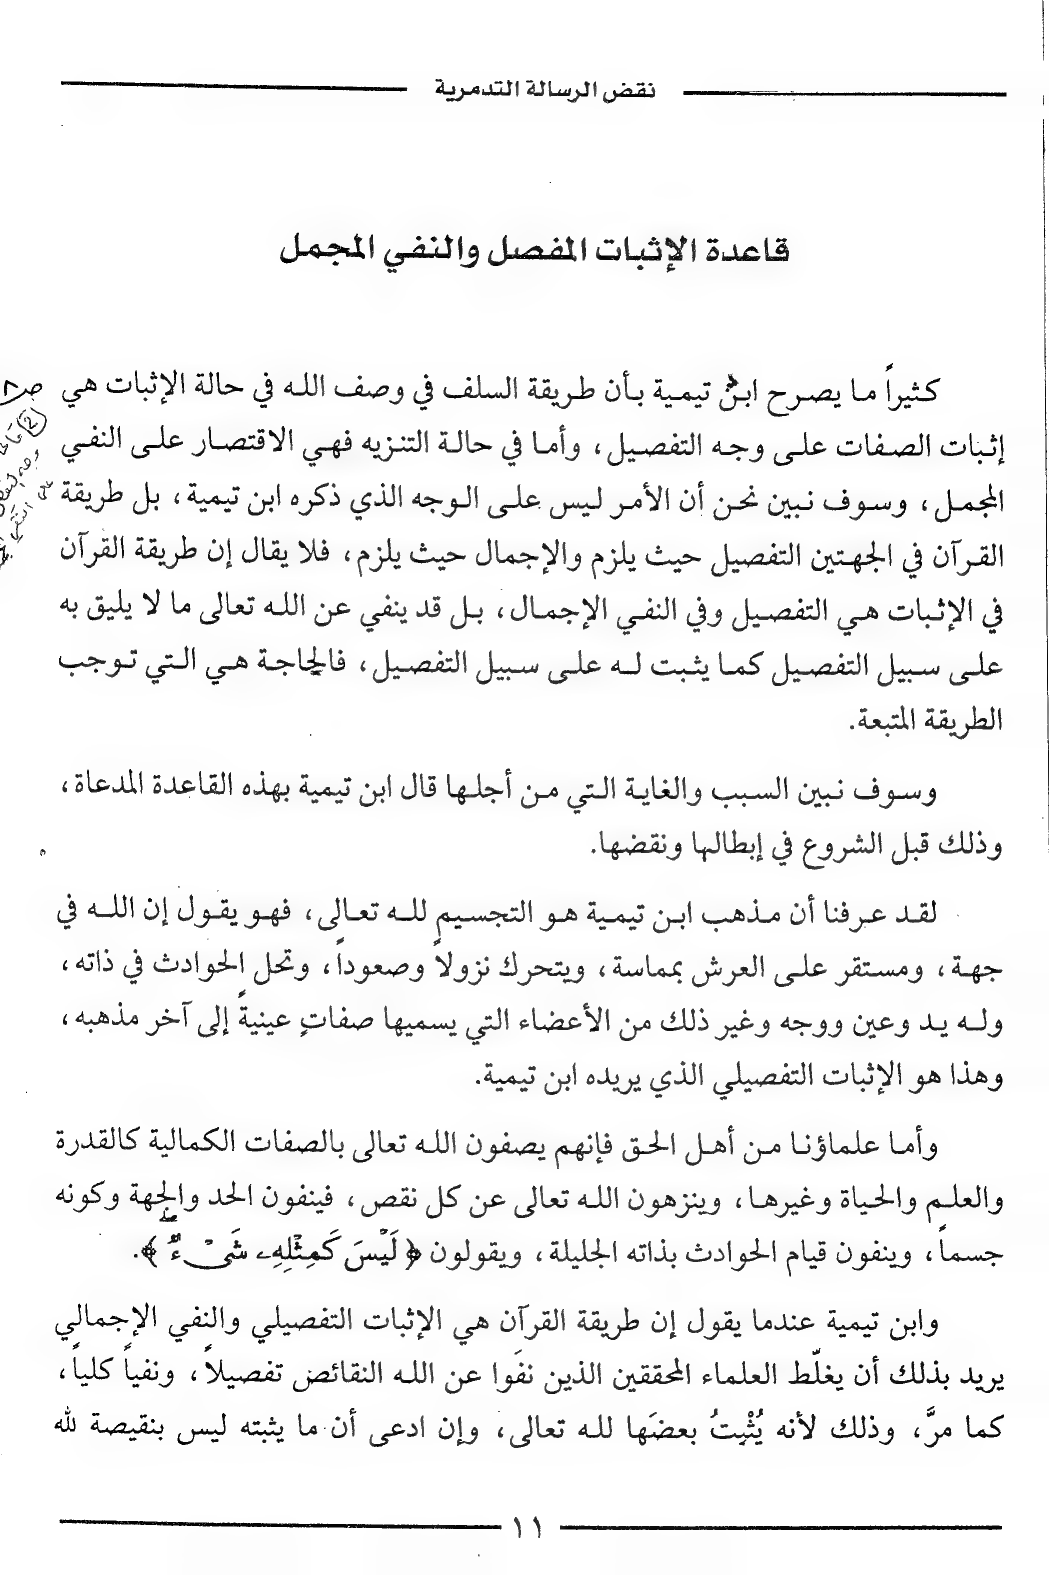 نقض الرسالة التدمرية
قاعدة الإثبات المفصل والنفي المجمل
كثيراً ما يصرح ابنُ تيمية بأن طريقة السلف في وصف الله في حالة الإثبات هي
إثبات الصفات على وجه التفصيل، وأما في حالة التنزيه فهي الاقتصار على النفي
المجمل، وسوف نبين نحن أن الأمر ليس على الوجه الذي ذكره ابن تيمية، بل طريقة
القرآن في الجهتين التفصيل حيث يلزم والإجمال حيث يلزم، فلا يقال إن طريقة القرآن
في الإثبات هي التفصيل وفي النفي الإجمال، بل قد ينفي عن الله تعالى ما لا يليق به
على سبيل التفصيل كما يثبت له على سبيل التفصيل، فالحاجة هي التي توجب
الطريقة المتبعة.
وسوف نبين السبب والغاية التي من أجلها قال ابن تيمية بهذه القاعدة المدعاة،
وذلك قبل الشروع في إبطالها ونقضها.
لقد عرفنا أن مذهب ابن تيمية هو التجسيم لله تعالى، فهو يقول إن الله في
جهة، ومستقر على العرش بمماسة، ويتحرك نزولاً وصعوداً، وتحل الحوادث في ذاته،
وله يد وعين ووجه وغير ذلك من الأعضاء التي يسميها صفاتٍ عينيةً إلى آخر مذهبه،
وهذا هو الإثبات التفصيلي الذي يريده ابن تيمية.
وأما علماؤنا من أهل الحق فإنهم يصفون الله تعالى بالصفات الكمالية كالقدرة
والعلم والحياة وغيرها، وينزهون الله تعالى عن كل نقص، فينفون الحد والجهة وكونه
جسماً، وينفون قيام الحوادث بذاته الجليلة، ويقولون ﴿ لَيْسَ كَمِثْلِهِۦ شَىْءٌ ﴾.
وابن تيمية عندما يقول إن طريقة القرآن هي الإثبات التفصيلي والنفي الإجمالي
يريد بذلك أن يغلّط العلماء المحققين الذين نفَوا عن الله النقائص تفصيلاً، ونفياً كلياً،
كما مرَّ، وذلك لأنه يُثْبِتُ بعضَها لله تعالى، وإن ادعى أن ما يثبته ليس بنقيصة لله
١١